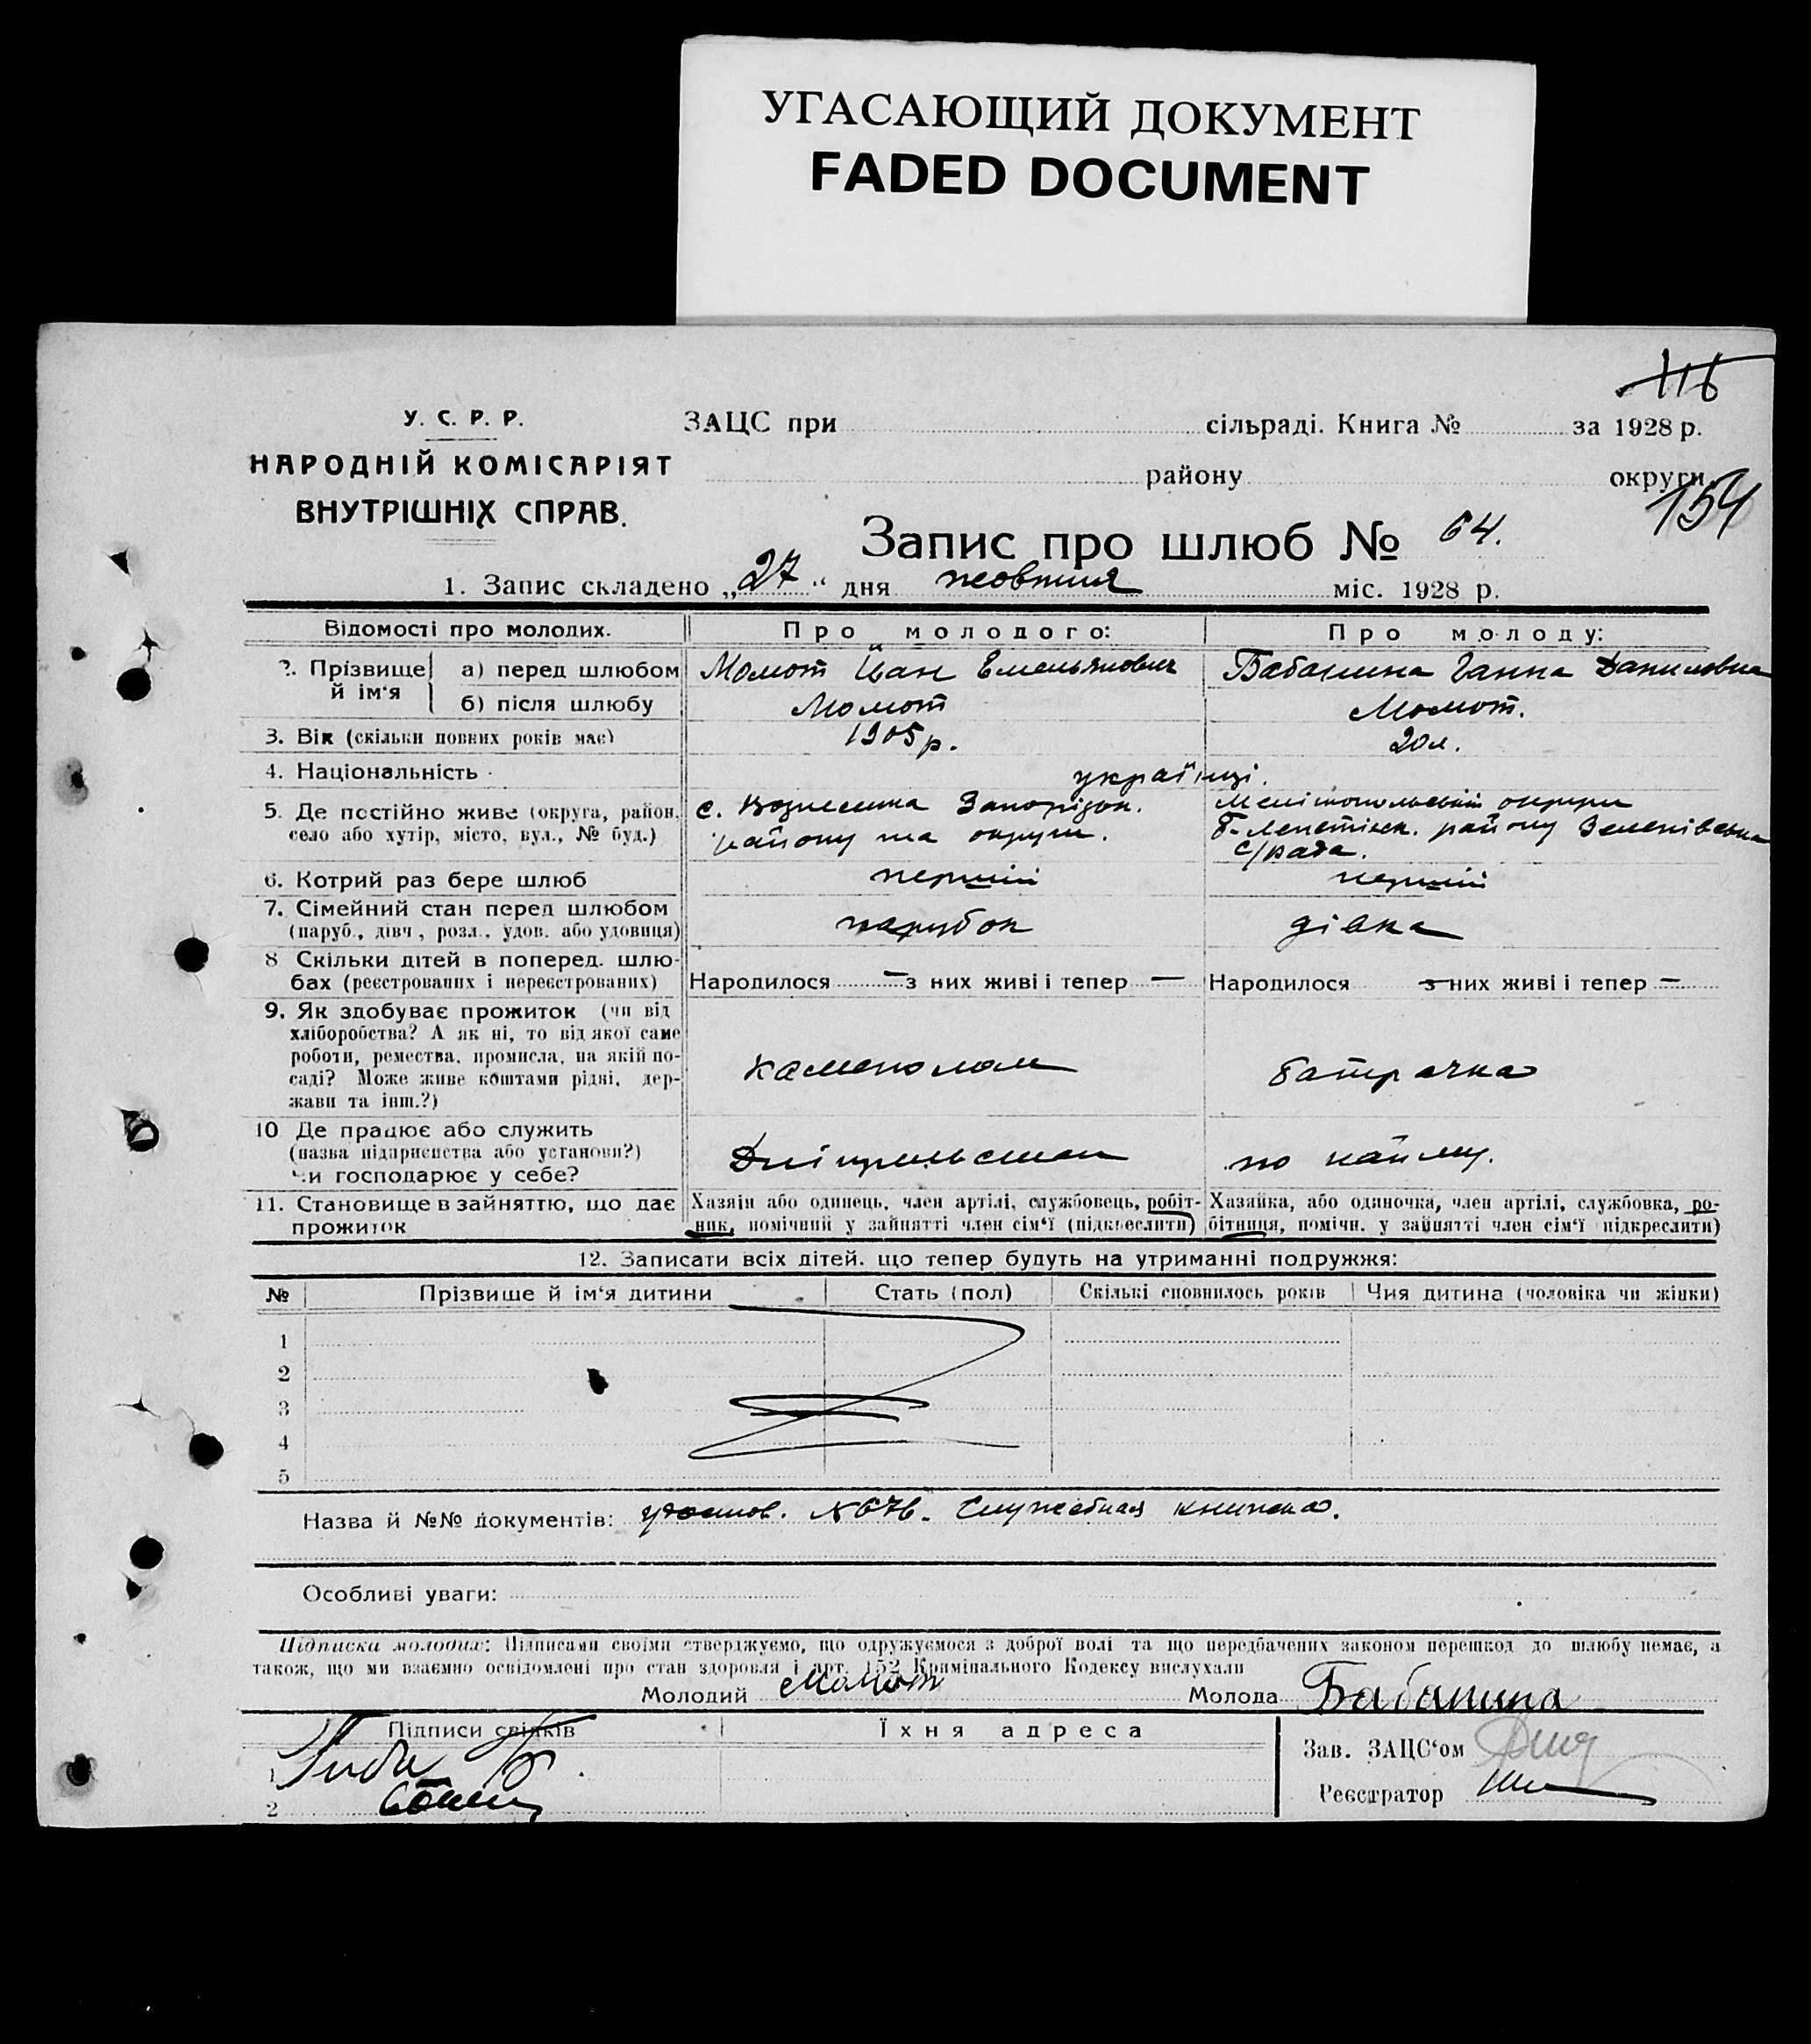 УГАСАЮЩИЙ ДОКУМЕНТ
FADED DOCUMENT
116
У. С. Р. Р.
НАРОДНІЙ КОМІСАРІЯТ
ВНУТРІШНІХ СПРАВ.
ЗАЦС при сільраді. Книга № за 1928 р.
району округи
154
Запис про шлюб № 64.
1. Запис складено „27" дня жовтня міс. 1928 р.
Відомості про молодих. Про молодого: Про молоду:
2. Прізвище й ім'я а) перед шлюбом Момот Іван Емельянович Бабанина Ганна Даниловна
б) після шлюбу Момот Момот.
3. Вік (скільки повних років має) 1905 р. 20 л.
4. Національність українці.
5. Де постійно живе (округа, район, село або хутір, місто, вул., № буд.)
с. Вознесенка Запоріжж. району та округи.
Мелітопольській округи
Б-Лепетіхск. району Зеленівська
с/рада.
6. Котрий раз бере шлюб перший перший
7. Сімейний стан перед шлюбом парубок дівка
(паруб., дівч., розл., удов. або удовиця)
8 Скільки дітей в поперед. шлюбах (реєстрованих і нереєстрованих)
Народилося — з них живі і тепер — Народилося — з них живі і тепер —
9. Як здобуває прожиток (чи від
хліборобства? А як ні, то від якої саме
роботи, ремества, промисла, на якій по-
саді? Може живе коштами рідні, дер-
жави та інш.?)
каменолом батрачка
10 Де працює або служить
(назва підприємства або установи?)
чи господарює у себе?
Дніпрельстан по найму.
11. Становище в зайняттю, що дає прожиток
Хазяін або одинець, член артілі, службовець, робіт-
ник, помічний у зайнятті член сім'ї (підкреслити)
Хазяйка, або одиночка, член артілі, службовка, ро-
бітниця, помічн. у зайнятті член сім'ї підкреслити)
12. Записати всіх дітей, що тепер будуть на утриманні подружжя:
№ Прізвище й ім'я дитини Стать (пол) Скількі сповнилось років Чия дитина (чоловіка чи жінки)
1
2
3
4
5
Назва й №№ документів: удостов. № 676. Служебная книжка.
Особливі уваги:
Підписка молодих: Підписами своїми стверджуємо, що одружуємося з доброї волі та що передбачених законом перешкод до шлюбу немає, а
також, що ми взаємно освідомлені про стан здоровля і арт. 152 Крімінального Кодексу вислухали
Молодий Момот Молода Бабанина
Підписи свідків Їхня адреса
Зав. ЗАЦС'ом
1
Реєстратор
2